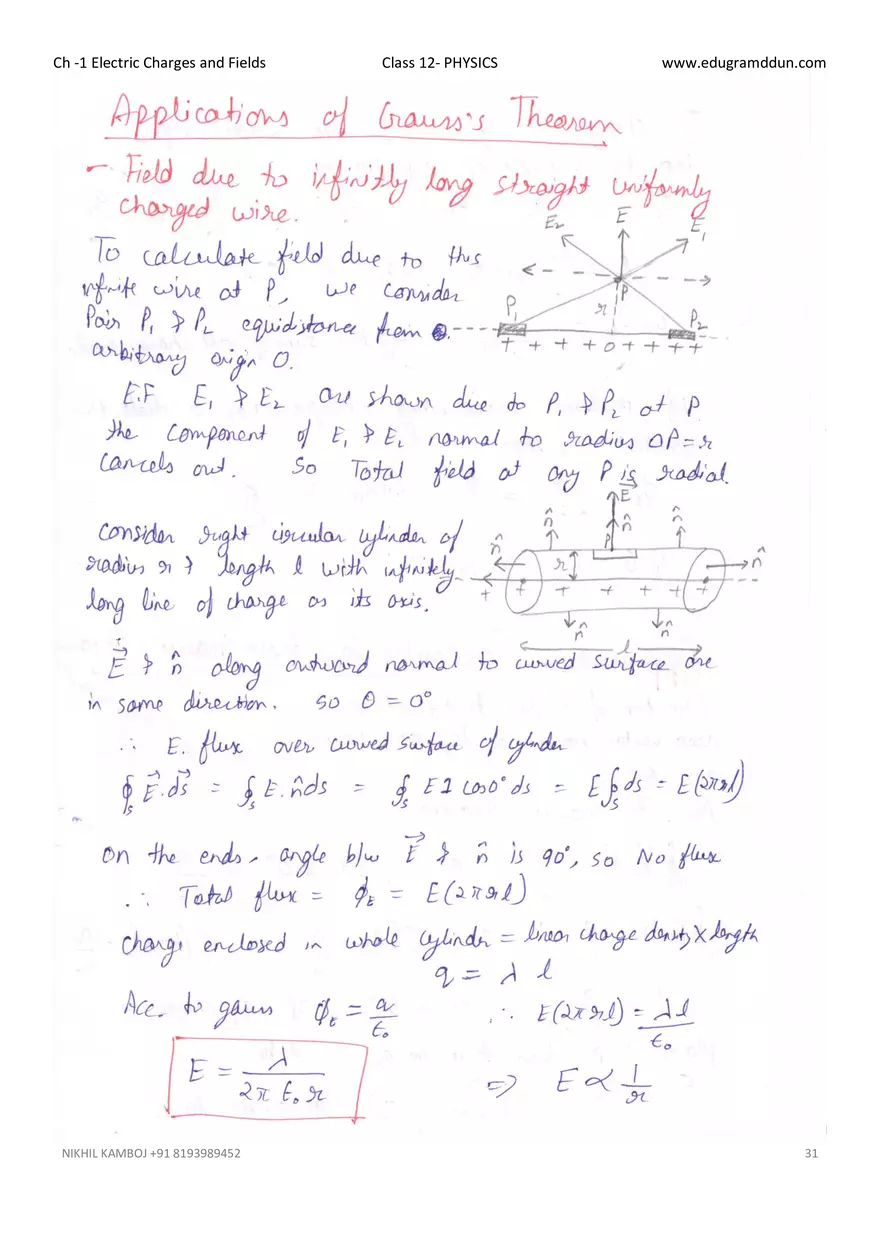 Ch -1 Electric Charges and Fields Class 12- PHYSICS www.edugramddun.com
Applications of Gauss's Theorem
- Field due to infinitly long straight uniformly
charged wire.
E₂ E E₁
To calculate field due to this
infinite wire at P, we consider
P
r
Pair P₁ & P₂ equidistance from
P₁ P₂
+ + + + O + + + +
arbitrary origin O.
E.F E₁ & E₂ are shown due to P₁ & P₂ at P
the component of E₁ & E₂ normal to radius OP = r
cancels out. So Total field at any P is radial.
E
n̂ n̂ n̂
P
Consider right circular cylinder of
n̂ r n̂
radius r & length l with infinitely
+ + + + + +
long line of charge as its axis.
n̂ n̂
l
E⃗ & n̂ along outward normal to curved surface are
in same direction. so θ = 0°
∴ E. flux over curved surface of cylinder
∮ₛ E⃗.ds⃗ = ∮ₛ E.n̂ds = ∮ₛ E1 cos0° ds = E∮ₛ ds = E(2πrl)
On the ends, angle b/w E⃗ & n̂ is 90°, so No flux
∴ Total flux = ϕ_E = E(2πrl)
Charge enclosed in whole cylinder = linear charge density X length
q = λ l
Acc. to gauss ϕ_E = q/ε₀ ∴ E(2πrl) = λl/ε₀
E = λ/2π ε₀ r => E ∝ 1/r
NIKHIL KAMBOJ +91 8193989452 31